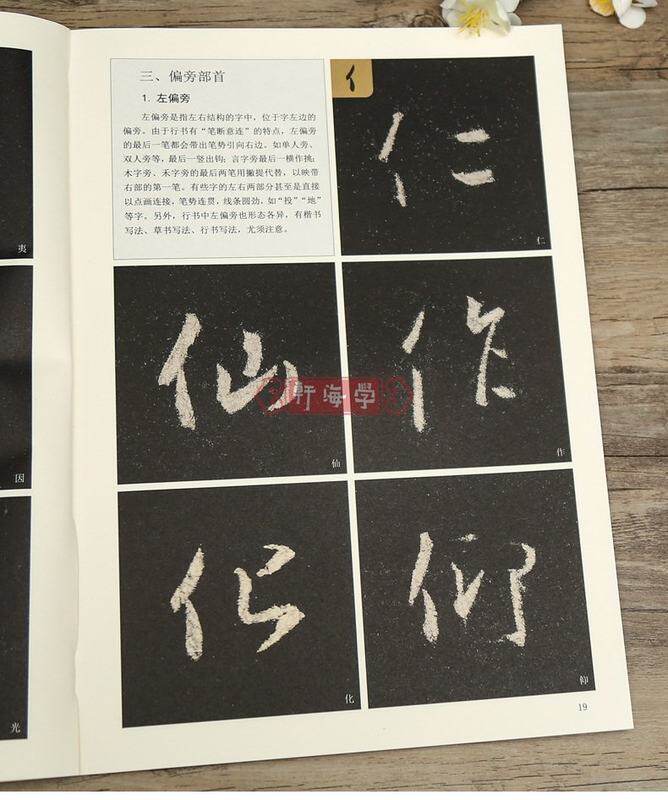 夷
因
光
三、偏旁部首
1. 左偏旁
左偏旁是指左右结构的字中，位于字左边的
偏旁。由于行书有“笔断意连”的特点，左偏旁
的最后一笔都会带出笔势引向右边。如单人旁、
双人旁等，最后一竖出钩；言字旁最后一横作挑；
木字旁、禾字旁的最后两笔用撇提代替，以映带
右部的第一笔。有些字的左右两部分甚至是直接
以点画连接，笔势连贯，线条圆劲，如“投”“地”
等字。另外，行书中左偏旁也形态各异，有楷书
写法、草书写法、行书写法，尤须注意。
亻
仁
仁
仙
仙
作
作
化
化
仰
仰
轩海学
19